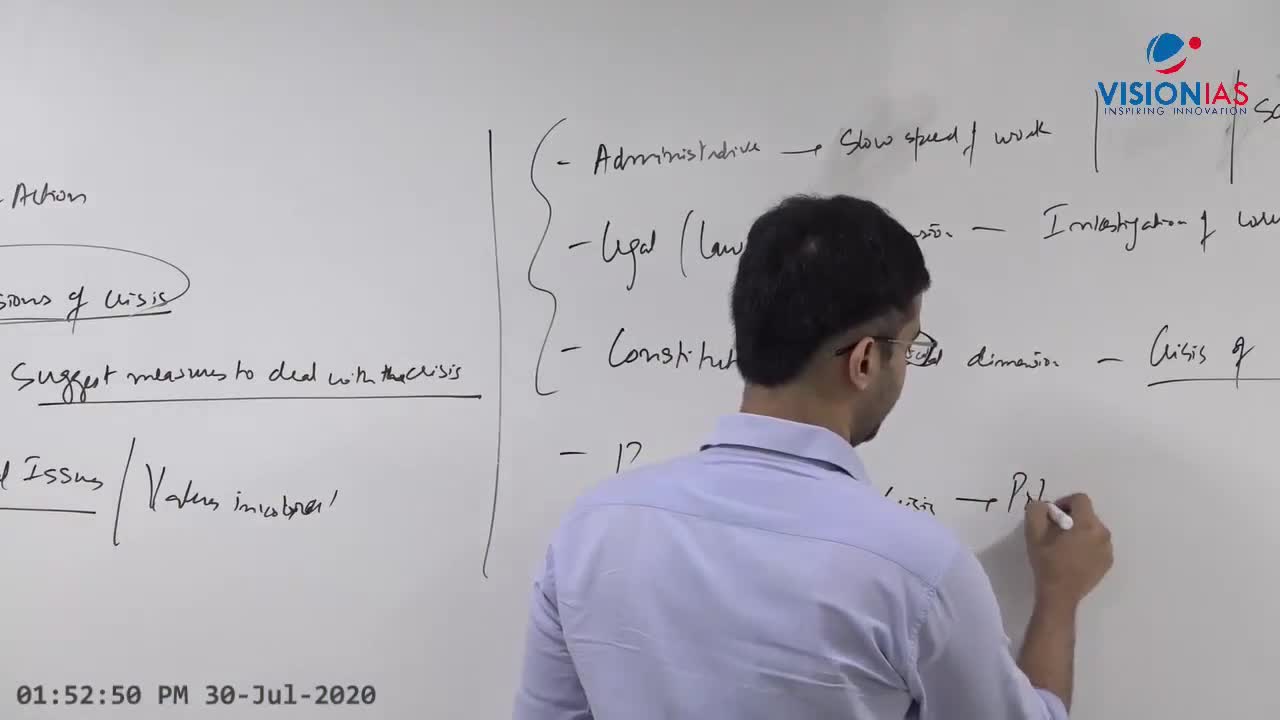 VISIONIAS
INSPIRING INNOVATION
- Action
sions of crisis
Suggest measures to deal with the crisis
Issues / Values involved
- Administrative → Slow speed of work
- Legal (Law sion - Investigation of
- Constitut dimension - Crisis of
- crisis →
01:52:50 PM 30-Jul-2020